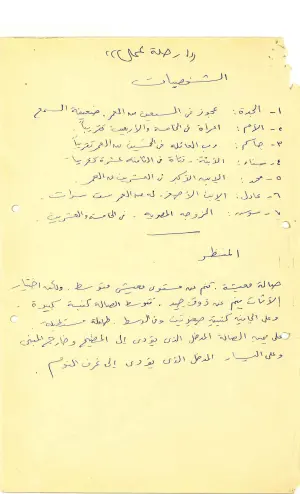 ((رحلة عمل))
الشخصيات
١- الجدة : عجوز في السبعين من العمر. ضعيفة السمع
٢- الأم : امرأة في الخامسة والأربعين تقريباً
٣- جاسم : رب العائلة في الخمسين من العمر تقريباً
٤- سناء : الابنة - فتاة في الثامنة عشرة تقريباً
٥- محمد : الابن الأكبر في العشرين من العمر
٦- عادل : الابن الأصغر. له من العمر ست سنوات.
٧- سوسن : الزوجة المصرية. في الخامسة والعشرين
المنظر
صالة معيشة. تنم عن مستوى معيشي متوسط. ولكن اختيار
الأثاث ينم عن ذوق جيد. تتوسط الصالة كنبة كبيرة
وعلى الجانبين كنبتين صغيرتين وفي الوسط. طاولة مستطيلة
على يمين الصالة المدخل الذي يؤدي إلى المطبخ وخارج المبنى
وعلى اليسار المدخل الذي يؤدي إلى غرف النوم